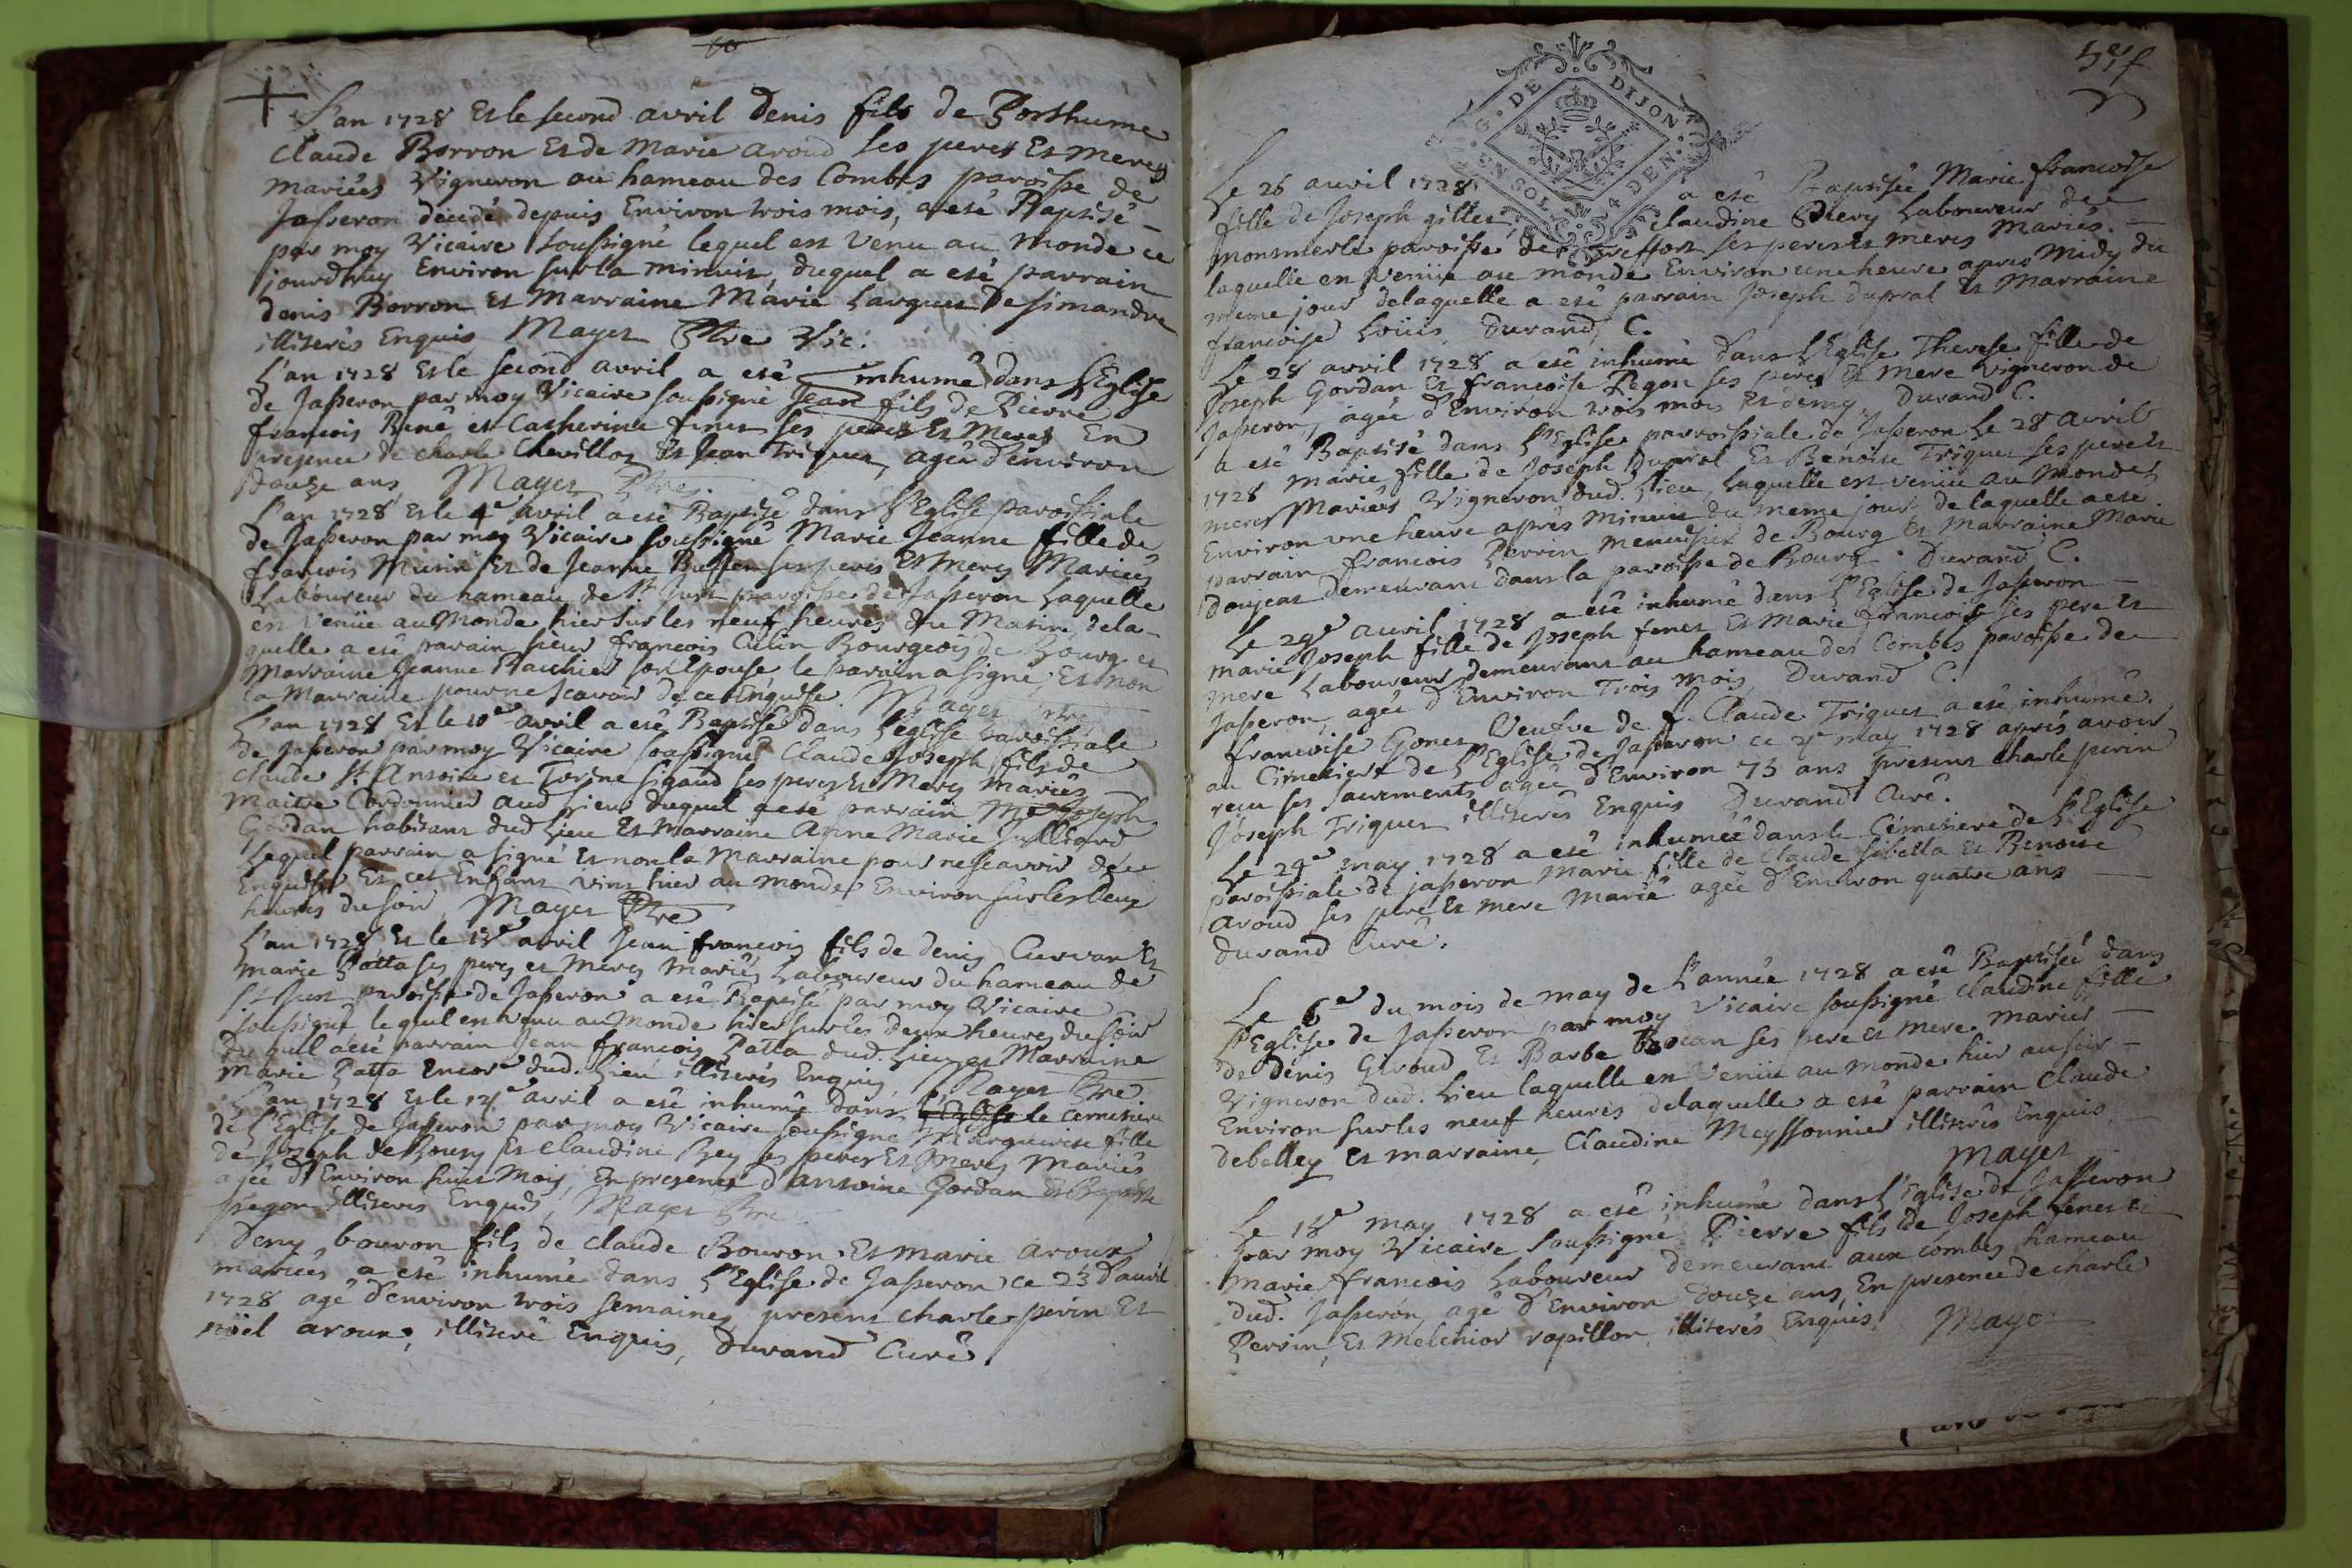 L'an 1728 Et le second avril Denis fils de Posthume
claude Borron Et de Marie aroud ses peres Et meres
mariées Vigneron au hameau des Combes paroisse de
Jasseron décédé depuis Environ trois mois, a esté Baptisé
par moy Vicaire soussigné lequel est venu au monde ce
jourdhuy Environ sur la minuit, duquel a esté parrain
denis Borron Et Marraine Marie Larguet de simandre
illiterés Enquis Mayet Ptre Vic.
L'an 1728 Et le second avril a esté inhumé dans L'Eglise
de Jasseron par moy Vicaire soussigné Jean fils de Pierre
francois René et Catherine finet ses peres Et Meres En
presence de charle Chevillon Et Jean Triquet, agée d'environ
douze ans Mayet Ptre
L'an 1728 Et le 4e avril a esté Baptisé dans L'Eglise paroissiale
de Jasseron par moy Vicaire soussigné Marie Jeanne fille de
francois Et de Jeanne ses peres Et Meres Mariées
Laboureur du hameau de St Just paroisse de Jasseron Laquelle
est Venüe au Monde hier sur les neuf heures du Matin, dela-
quelle a esté parain sieur francois Cutin Bourgeois de Bourg et
Marraine Jeanne son Epouse le parain a signé, Et non
la Marraine pour ne scavoir de ce Enquise. Mayet Ptre
L'an 1728 Et le 10e avril a esté Baptisé dans L'eglise paroissiale
de Jasseron par moy Vicaire soussigné Claude Joseph fils de
Claude St Antoine et sigaud ses peres Et Meres Mariés
Maitre Cordonnier aud Lieu duquel a esté parrain Me Joseph
Gordan habitant dud Lieu Et Marraine Anne Marie Julliard
Lequel parrain a signé Et non la Marraine pour ne scavoir de ce
Enquise Et cet Enfant vint hier au monde Environ sur les deux
heures du soir, Mayet Ptre
L'an 1728 Et le 13e avril Jean francois fils de denis Et
marie Patta ses peres et Meres Mariés Laboureur du hameau de
St Just paroisse de Jasseron a esté Baptisé par moy Vicaire
soussigné lequel est venu au Monde hier sur les deux heures du soir
duquel a esté parrain Jean francois Patta dud. Lieu et Marraine
Marie Patta Encor dud. Lieu illiterés Enquis, Mayet Ptre
L'an 1728 Et le 14e avril a esté inhumé dans L'Eglise le cimetiere
de L'Eglise de Jasseron par moy Vicaire soussigné Marguerite fille
de Joseph de Bourg Et Claudine Rey ses peres Et Meres Mariés
agée d'Environ huit Mois, En presence d'antoine Gordan Et Baptiste
pegon illiterés Enquis, Mayet Ptre
Deny bouron fils de claude Bouron Et marie aroux
mariés a esté inhumé dans L'Eglise de Jasseron ce 23 d'avril
1728 agé d'environ trois semaines, present charle perin Et
noël aroux, illiteré Enquis, Durand Curé.
Le 26 avril 1728 a esté Baptisée Marie francoise
fille de Joseph gillet claudine Laboureur de
monsmerle paroisse de treffort ses peres Et meres Mariés.
laquelle en Venüe au monde Environ une heure apres Midy du
meme jour delaquelle a esté parrain Joseph dupral Et Marraine
francoise Loüis, Durand, C.
Le 28 avril 1728 a esté inhumé dans L'Eglise Therese fille de
Joseph Gordan Et francoise Pegon ses peres Et Mere Vigneron de
Jasseron, agée d'Environ trois mois Et demy, Durand C.
a esté Baptisé dans L'Eglise parroissiale de Jasseron Le 28 avril
1728 marie fille de Joseph Dupral Et Benoite Triquet ses pere Et
meres Mariées Vigneron dud. Lieu, laquelle est venüe au Monde
Environ une heure aprés minuit du meme jour, de laquelle a esté
parrain francois Perrin menusier de Bourg Et Marraine Marie
Doujeat demeurant dans la paroisse de Bourg. Durand C.
Le 29e avril 1728 a esté inhumé dans L'Eglise de Jasseron
marie Joseph fille de Joseph fenet Et Marie francois ses pere Et
mere Laboureur demeurant au hameau des Combes paroisse de
Jasseron, agée d'Environ Trois mois, Durand C.
francoise Gonet Veufve de f. Claude Triquet a esté inhumé
au Cimetiere de L'Eglise de Jasseron ce 4e may 1728 aprés avoir
recu ses sacrements agée d'Environ 75 ans Present charle perin
Joseph Triquet illiterés Enquis Durand Curé.
Le 24e may 1728 a esté inhumée dans le Cimetiere de L'Eglise
paroissiale de jasseron Marie fille de Claude sibella Et Benoite
aroud ses pere Et mere Marié agée d'Environ quatre ans
Durand Curé.
Le 6e du mois de may de L'année 1728 a esté Baptisée dans
L'Eglise de Jasseron par moy Vicaire soussigné claudine fille
de Denis Giroud Et Barbe ses pere Et mere mariés
Vigneron dud. Lieu laquelle en Venüe au monde hier au soir
Environ sur les neuf heures delaquelle a esté parrain Claude
debelley Et marraine, Claudine Meyssonnier illiterés Enquis
Mayet
Le 15e may 1728 a esté inhumé dans l'Eglise de Jasseron
par moy Vicaire soussigné Pierre fils de Joseph fenet Et
Marie francois Laboureur demeurant aux combes hameau
dud. Jasseron, agé d'Environ douze ans, En presence de charle
Perrin, Et Melchior rapillon, illiterés Enquis, Mayet
G. DE DIJON
EN COL 4 DEN.